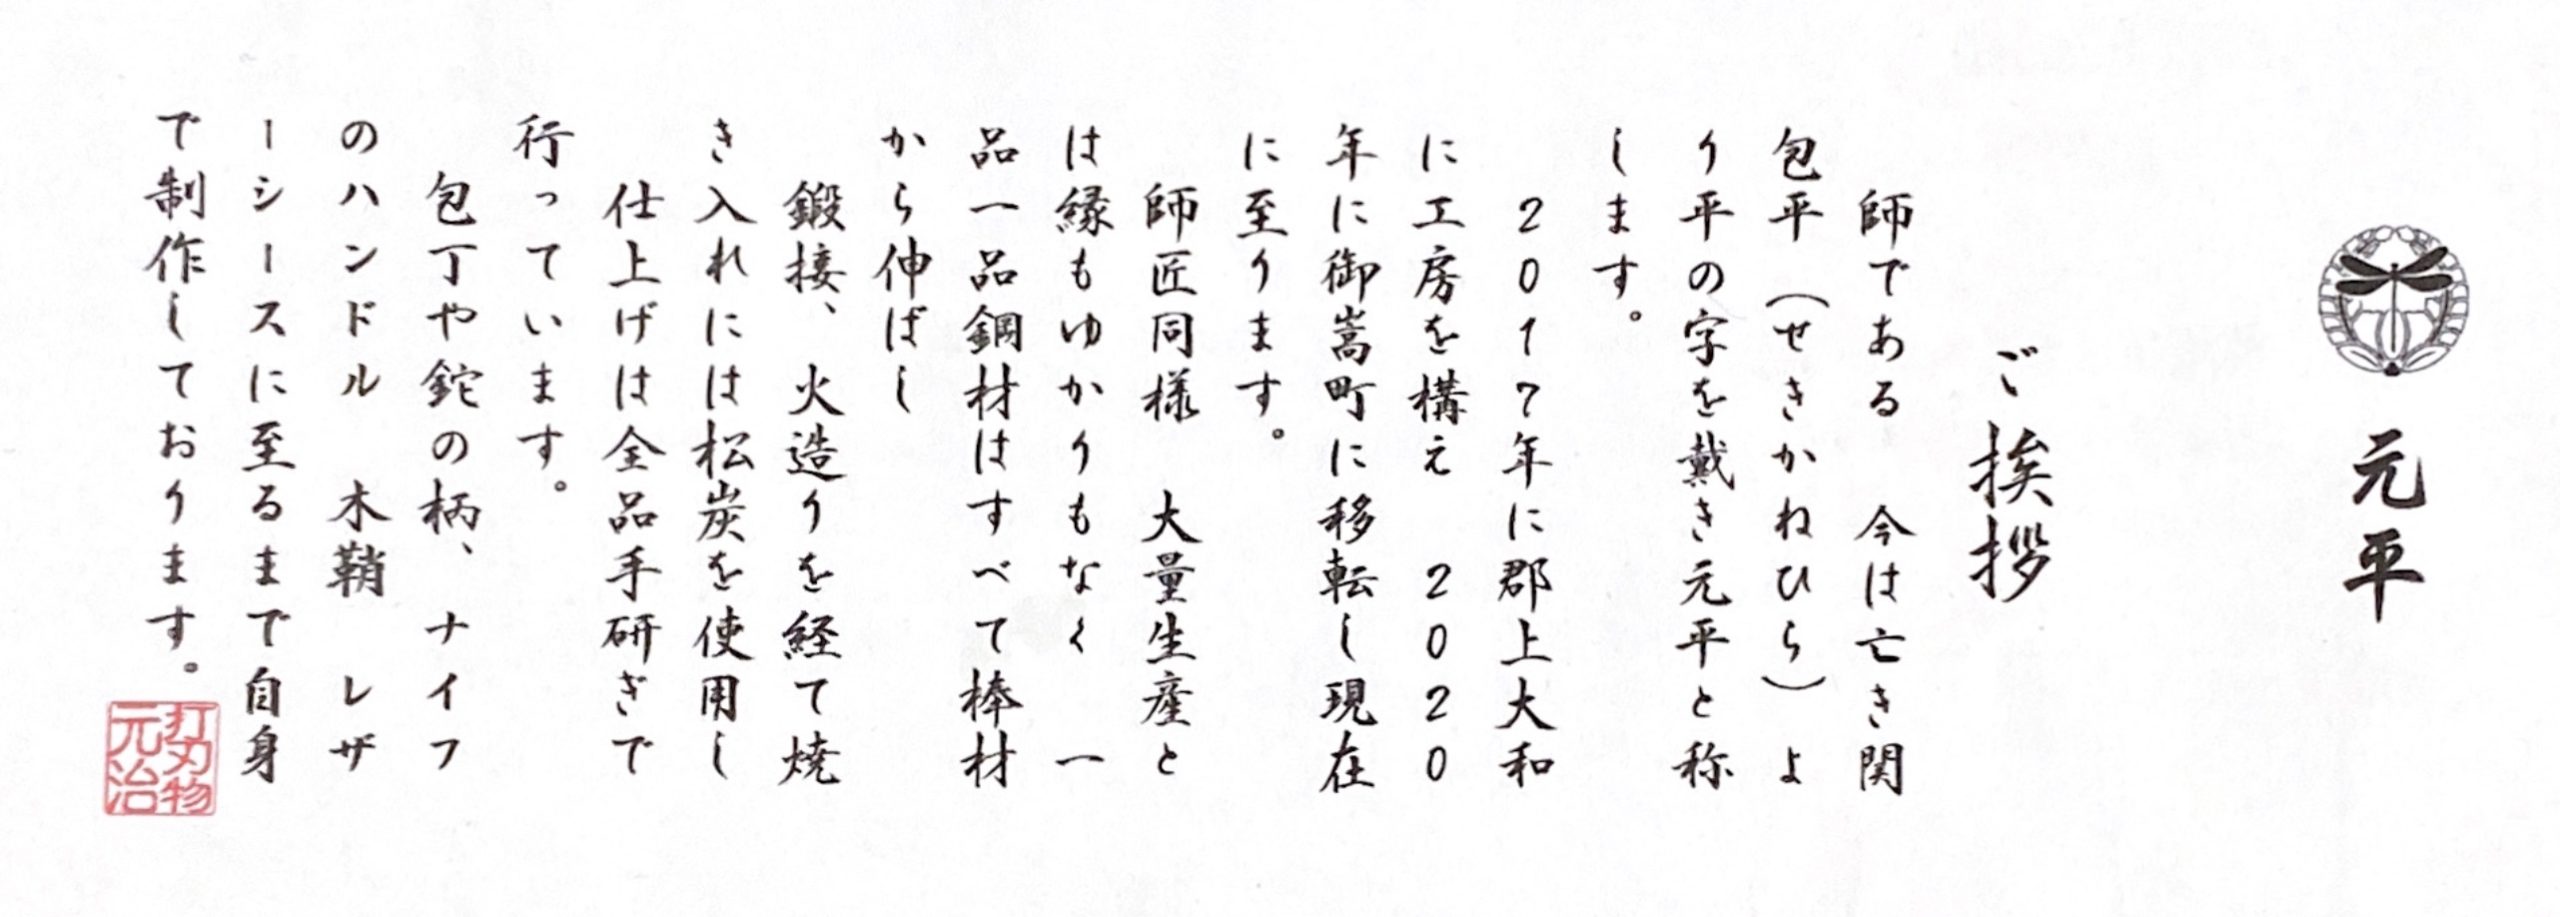 元平
ご挨拶
師である　今は亡き関
包平（せきかねひら）よ
り平の字を戴き元平と称
します。
２０１７年に郡上大和
に工房を構え　２０２０
年に御嵩町に移転し現在
に至ります。
師匠同様　大量生産と
は縁もゆかりもなく　一
品一品鋼材はすべて棒材
から伸ばし
鍛接、火造りを経て焼
き入れには松炭を使用し
仕上げは全品手研ぎで
行っています。
包丁や鉈の柄、ナイフ
のハンドル　木鞘　レザ
ーシースに至るまで自身
で制作しております。
打刃物
元治